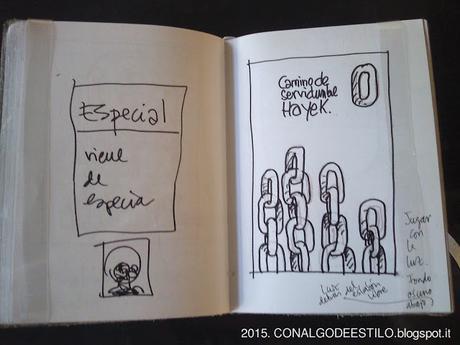 Especial
viene
de
especia
Camino de
servidumbre
Hayek.
Jugar
con
la
luz.
Fondo
oscuro
abajo)
Luz
detrás del
eslabón
libre
2015. CONALGODEESTILO.blogspot.it